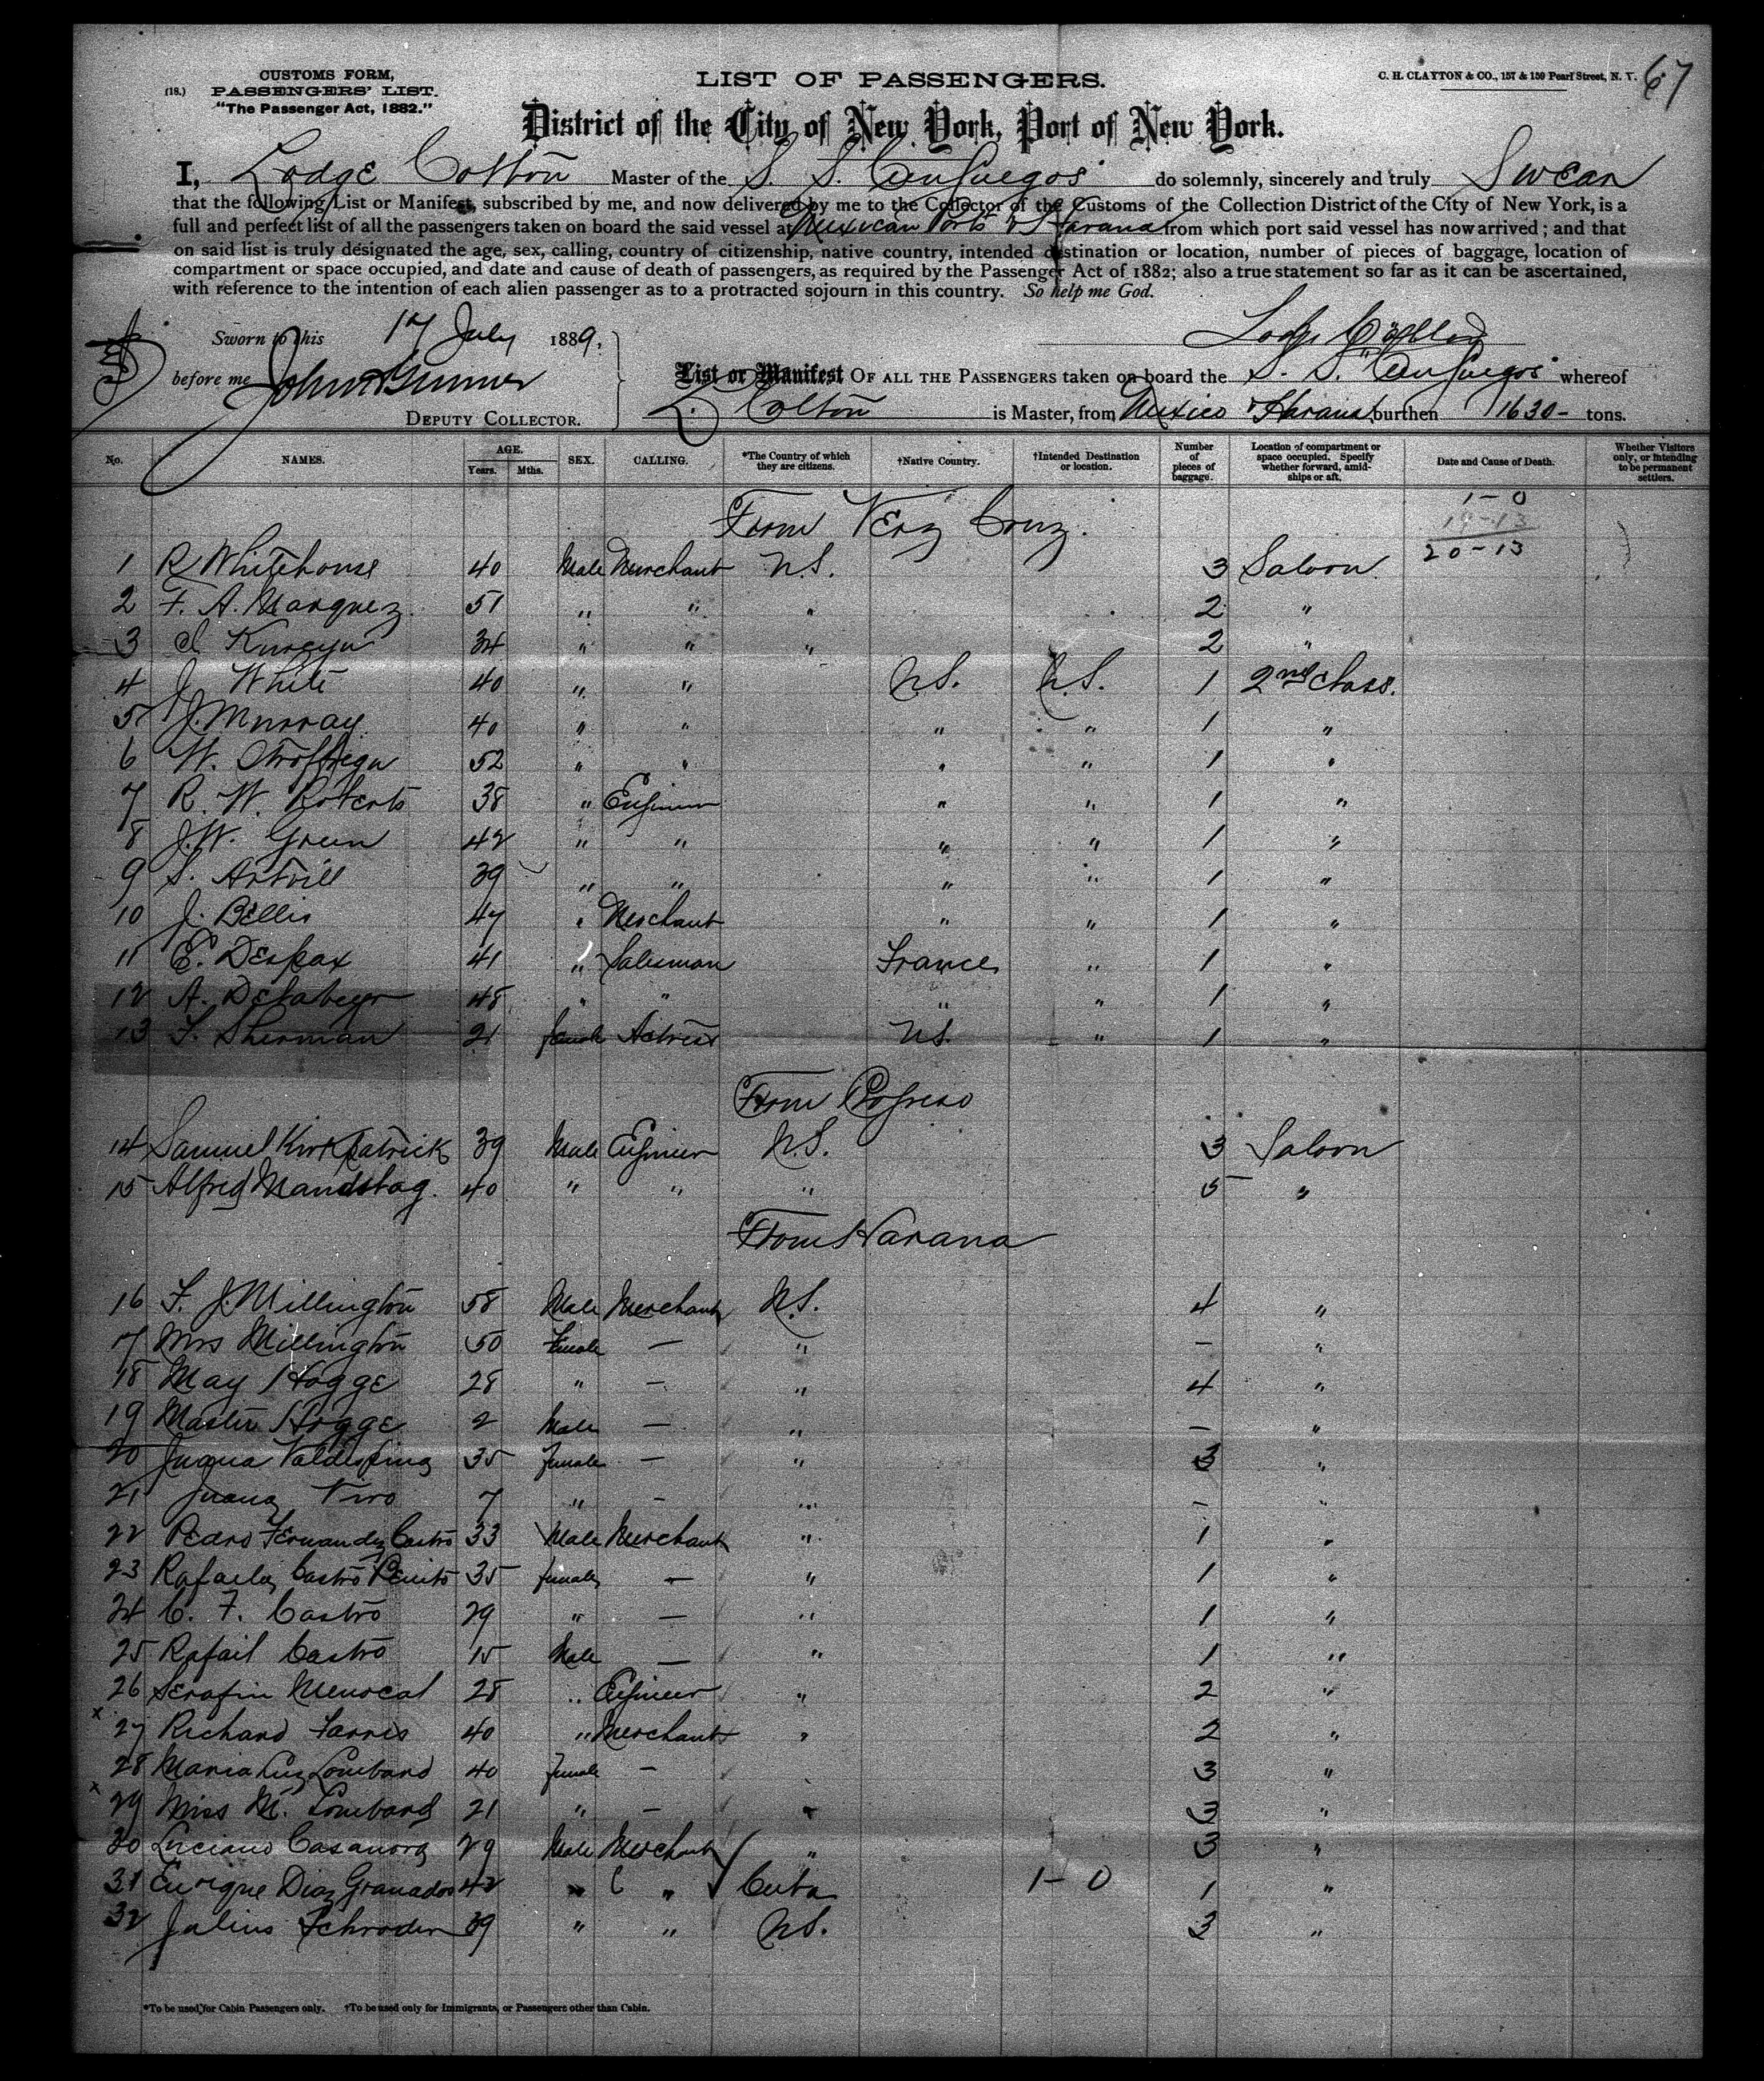 CUSTOMS FORM,
(18.) PASSENGERS' LIST.
"The Passenger Act, 1882."
LIST OF PASSENGERS.
C. H. CLAYTON & CO., 157 & 159 Pearl Street, N. Y. 67
District of the City of New York, Port of New York.
I, Lodge Colton Master of the S. S. Cienfuegos do solemnly, sincerely and truly Swear
that the following List or Manifest, subscribed by me, and now delivered by me to the Collector of the Customs of the Collection District of the City of New York, is a
full and perfect list of all the passengers taken on board the said vessel at Mexican Ports & Havana from which port said vessel has now arrived; and that
on said list is truly designated the age, sex, calling, country of citizenship, native country, intended destination or location, number of pieces of baggage, location of
compartment or space occupied, and date and cause of death of passengers, as required by the Passenger Act of 1882; also a true statement so far as it can be ascertained,
with reference to the intention of each alien passenger as to a protracted sojourn in this country. So help me God.
Sworn to this 17 July 1889,
before me
DEPUTY COLLECTOR.
List or Manifest OF ALL THE PASSENGERS taken on board the S. S. Cienfuegos whereof
L. Colton is Master, from Mexico & Havana burthen 1630 - tons.
No. NAMES. AGE. Years. Mths. SEX. CALLING. *The Country of which they are citizens. †Native Country. †Intended Destination or location. Number of pieces of baggage. Location of compartment or space occupied. Specify whether forward, amidships or aft. Date and Cause of Death. Whether Visitors only, or intending to be permanent settlers.
1 - 0
19 - 13
20 - 13
From Vera Cruz.
1 R Whitehouse 40 Male Merchant U.S. 3 Saloon
2 F. A. Marquez 51 " " " 2 "
3 34 " " " 2 "
4 J. White 40 " " U.S. U.S. 1 2nd Class.
5 J. Murray 40 " " " " 1 "
6 W. 52 " " " " 1 "
7 R. W. Roberts 38 " Engineer " " 1 "
8 J. W. Green 42 " " " " 1 "
9 S. 39 " " " " 1 "
10 J. Bellis 47 " Merchant " " 1 "
11 E. Despax 41 " Salesman France " 1 "
12 A. 48 " " " " 1 "
13 F. Sherman 21 female Actress U.S. " 1 "
From Progreso
14 Samuel Kirkpatrick 39 Male Engineer U.S. 3 Saloon
15 Alfred 40 " " " 5 "
From Havana
16 F. J. Millington 58 Male Merchant U.S. 4 "
17 Mrs Millington 50 Female — " — "
18 May Hogge 28 " — " 4 "
19 Master Hogge 2 Male — " — "
20 Juana Valdespina 35 female — " 3 "
21 Juana 7 " — " — "
22 Pedro Fernandez Castro 33 Male Merchant " 1 "
23 Rafaela Castro 35 female — " 1 "
24 C. F. Castro 29 " — " 1 "
25 Rafail Castro 15 Male — " 1 "
26 Serafin Menocal 28 " Engineer " 2 "
x 27 Richard Farres 40 " Merchant " 2 "
28 Maria Luz Lombard 40 female — " 3 "
x 29 Miss M. Lombard 21 " — " 3 "
30 Luciano Casanova 29 Male Merchant " 3 "
31 Enrique Diaz Granados 42 " " Cuba 1 - 0 1 "
32 Julius Schroder 39 " " U.S. 3 "
*To be used for Cabin Passengers only. †To be used only for Immigrants, or Passengers other than Cabin.